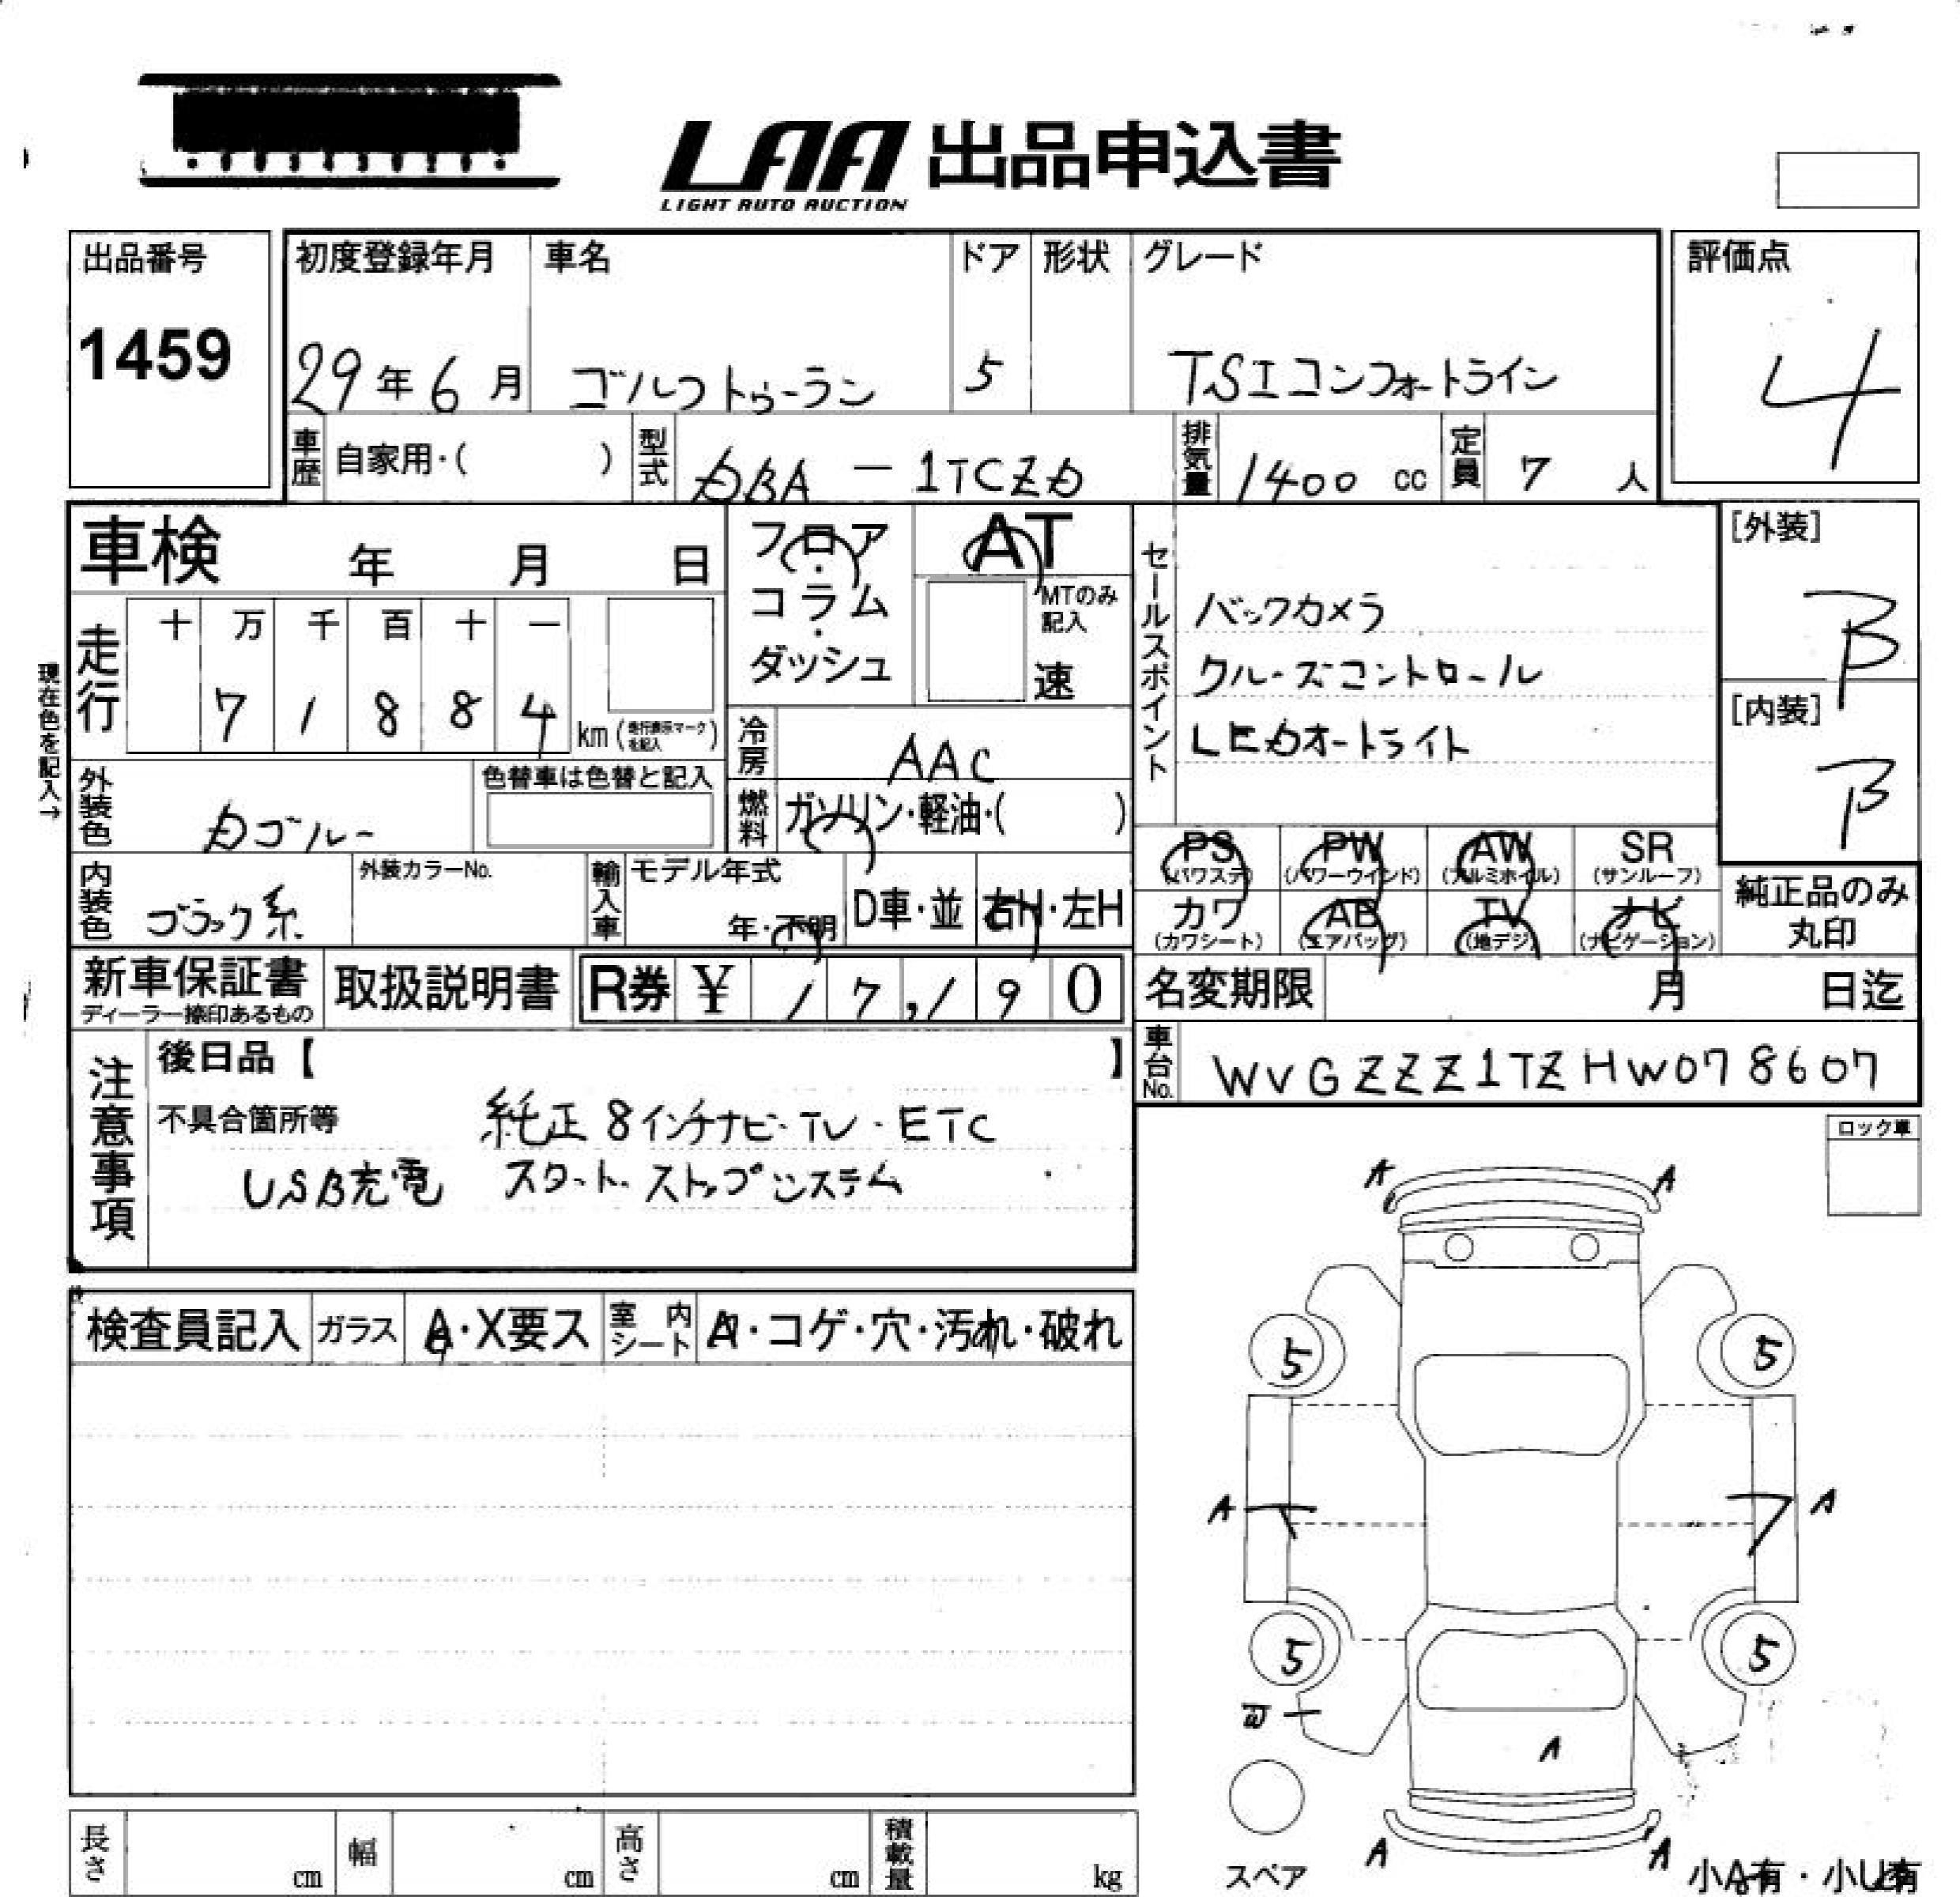 LAA 出品申込書
LIGHT AUTO AUCTION
出品番号
1459
初度登録年月
29年6月
車名
ゴルフトゥーラン
ドア
5
形状
グレード
TSIコンフォートライン
評価点
4
車歴 自家用・( )
型式 DBA－1TCZD
排気量 1400 cc
定員 7 人
車検 年 月 日
フロア・コラム・ダッシュ
AT
MTのみ記入
速
セールスポイント
バックカメラ
クルーズコントロール
LEDオートライト
[外装]
B
[内装]
B
現在色を記入→
走行 十 万 千 百 十 一
7 1 8 8 4 km (走行表示マークを記入)
冷房 AAC
外装色
色替車は色替と記入
燃料 ガソリン・軽油・( )
内装色 ブラック系
外装カラーNo.
輸入車 モデル年式
年・不明
D車・並
右H・左H
PS (パワステ)
PW (パワーウインド)
AW (アルミホイル)
SR (サンルーフ)
カワ (カワシート)
AB (エアバッグ)
TV (地デジ)
ナビ (ナビゲーション)
純正品のみ丸印
新車保証書
ディーラー捺印あるもの
取扱説明書
R券 ¥ 17,190
名変期限 月 日迄
車台No. WVGZZZ1TZHW078607
注意事項
後日品【 】
不具合箇所等 純正8インチナビ・TV・ETC
USB充電 スタート・ストップシステム
ロック車
A A
検査員記入 ガラス A・X要ス 室内シート A・コゲ・穴・汚れ・破れ
5 5
A A
5 5
A
A A
スペア
小A有・小U有
長さ cm 幅 cm 高さ cm 積載量 kg